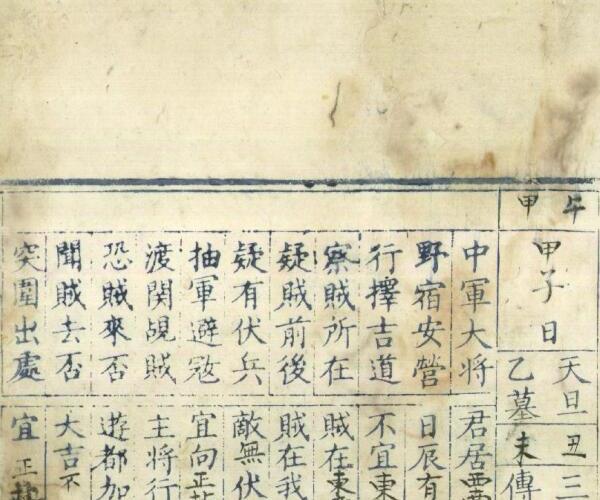 午
甲
甲子日
天旦丑三
乙墓未傳
中軍大将
君居西
野宿安營
日辰有
行擇吉道
不宜東
察賊所在
賊在東
疑賊前後
賊在我
疑有伏兵
敵無伏
抽軍避寇
宜向正
渡関覘賊
主將行
恐賊來否
遊都加
聞賊去否
大吉不
突圍出處
宜正